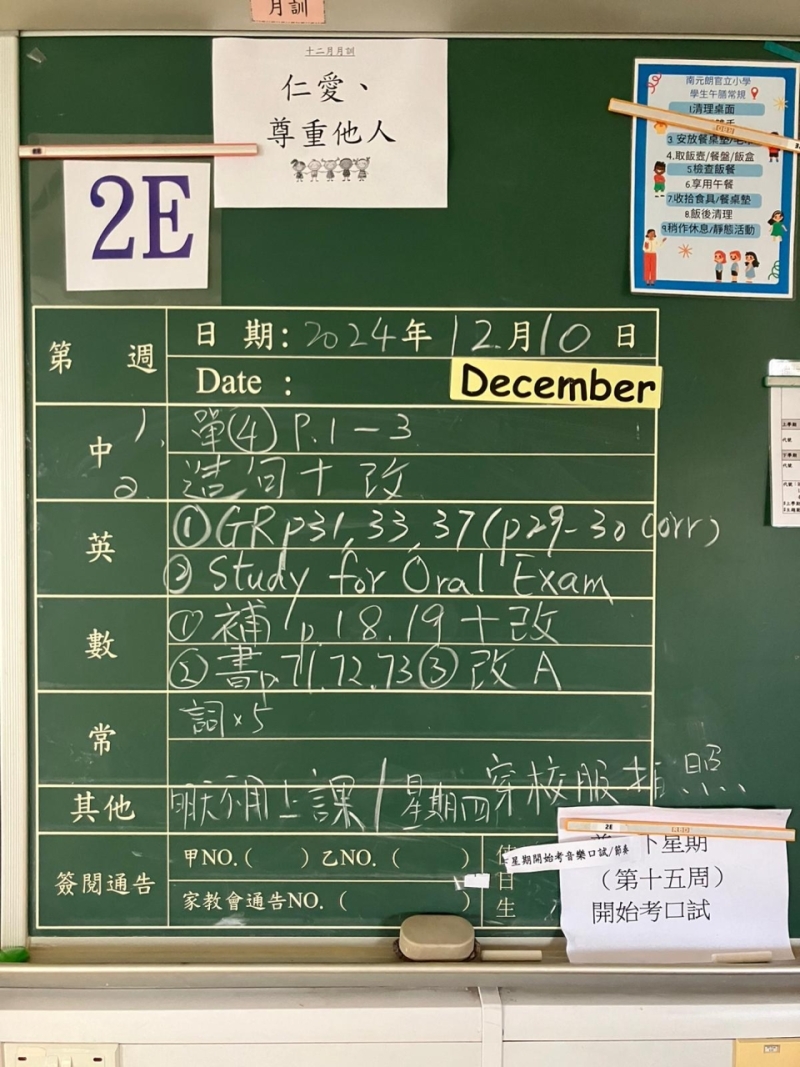 月訓
十二月月訓
仁愛、
尊重他人
2E
南元朗官立小學
學生午膳常規
1清理桌面
3.安放餐桌墊/
4.取飯壺/餐盤/飯盒
5.檢查飯餐
6.享用午餐
7.收拾食具/餐桌墊
8.飯後清理
9.稍作休息/靜態活動
第 週
日 期: 2024年 12月10日
Date :
December
中
1. 單④ P.1-3
2. 造句+改
英
①GR p31, 33, 37 (p29-30 corr)
② Study for Oral Exam
數
① 補 p.18.19+改
② 書p.71.72.73 ③ 改A
常
詞×5
其他
明天不用上課/星期四穿校服拍照
簽閱通告
甲NO.( ) 乙NO. ( )
家教會通告NO. ( )
值日生
星期開始考音樂口試/節奏
2E
下星期
（第十五周）
開始考口試